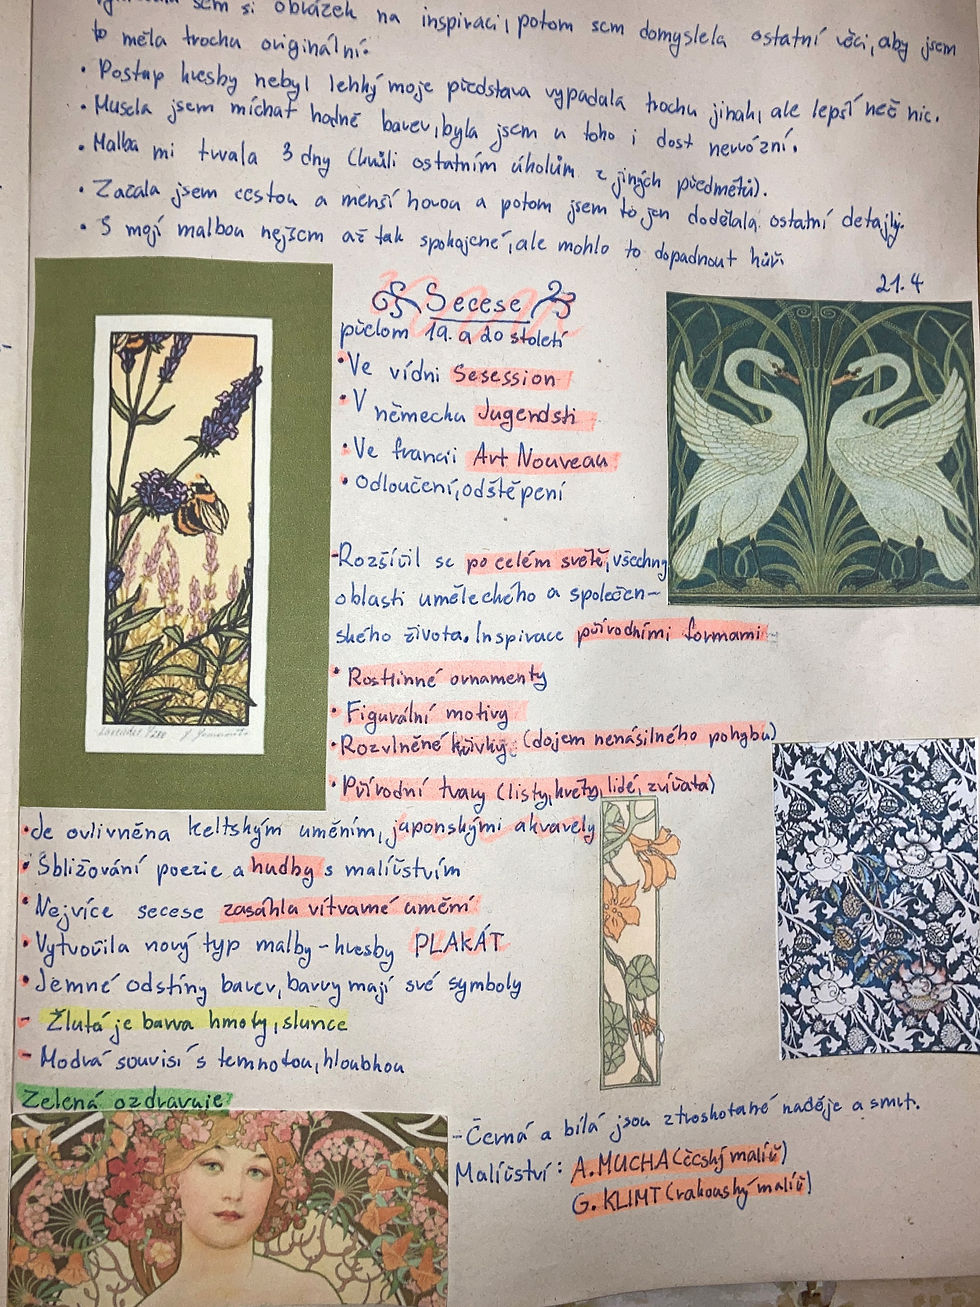 sem si obrázek na inspiraci, potom sem domyslela ostatní věci, aby jsem
to měla trochu originální.
• Postup kresby nebyl lehký moje představa vypadala trochu jinak, ale lepší než nic.
• Musela jsem míchat hodně barev, byla jsem u toho i dost nervózní.
• Malba mi trvala 3 dny (kvůli ostatním úkolům z jiných předmětů).
• Začala jsem cestou a menší horou a potom jsem to jen dodělala ostatní detaily.
• S mojí malbou nejsem až tak spokojené, ale mohlo to dopadnout hůř.
21.4
Secese
přelom 19. a 20 století
• Ve vídni Sesession
• V německu Jugendsti
• Ve francii Art Nouveau
• Odloučení, odštěpení
-Rozšířil se po celém světě, všechny
oblasti uměleckého a společen-
ského života. Inspirace přírodními formami
• Rostlinné ornamenty
• Figurální motivy
• Rozvlněné křivky (dojem nenásilného pohybu)
• Přírodní tvary (listy, květy, lidé, zvířata)
• Je ovlivněna keltským uměním, japonskými akvarely
• Sbližování poezie a hudby s malířstvím
• Nejvíce secese zasáhla vítvarné umění
• Vytvořila nový typ malby-kresby PLAKÁT
• Jemné odstíny barev, barvy mají své symboly
- Žlutá je barva hmoty, slunce
- Modrá souvisí s temnotou, hloubkou
Zelená ozdravuje
-Černá a bílá jsou ztroskotané naděje a smrt.
Malířství: A. MUCHA (český malíř)
G. KLIMT (rakouský malíř)